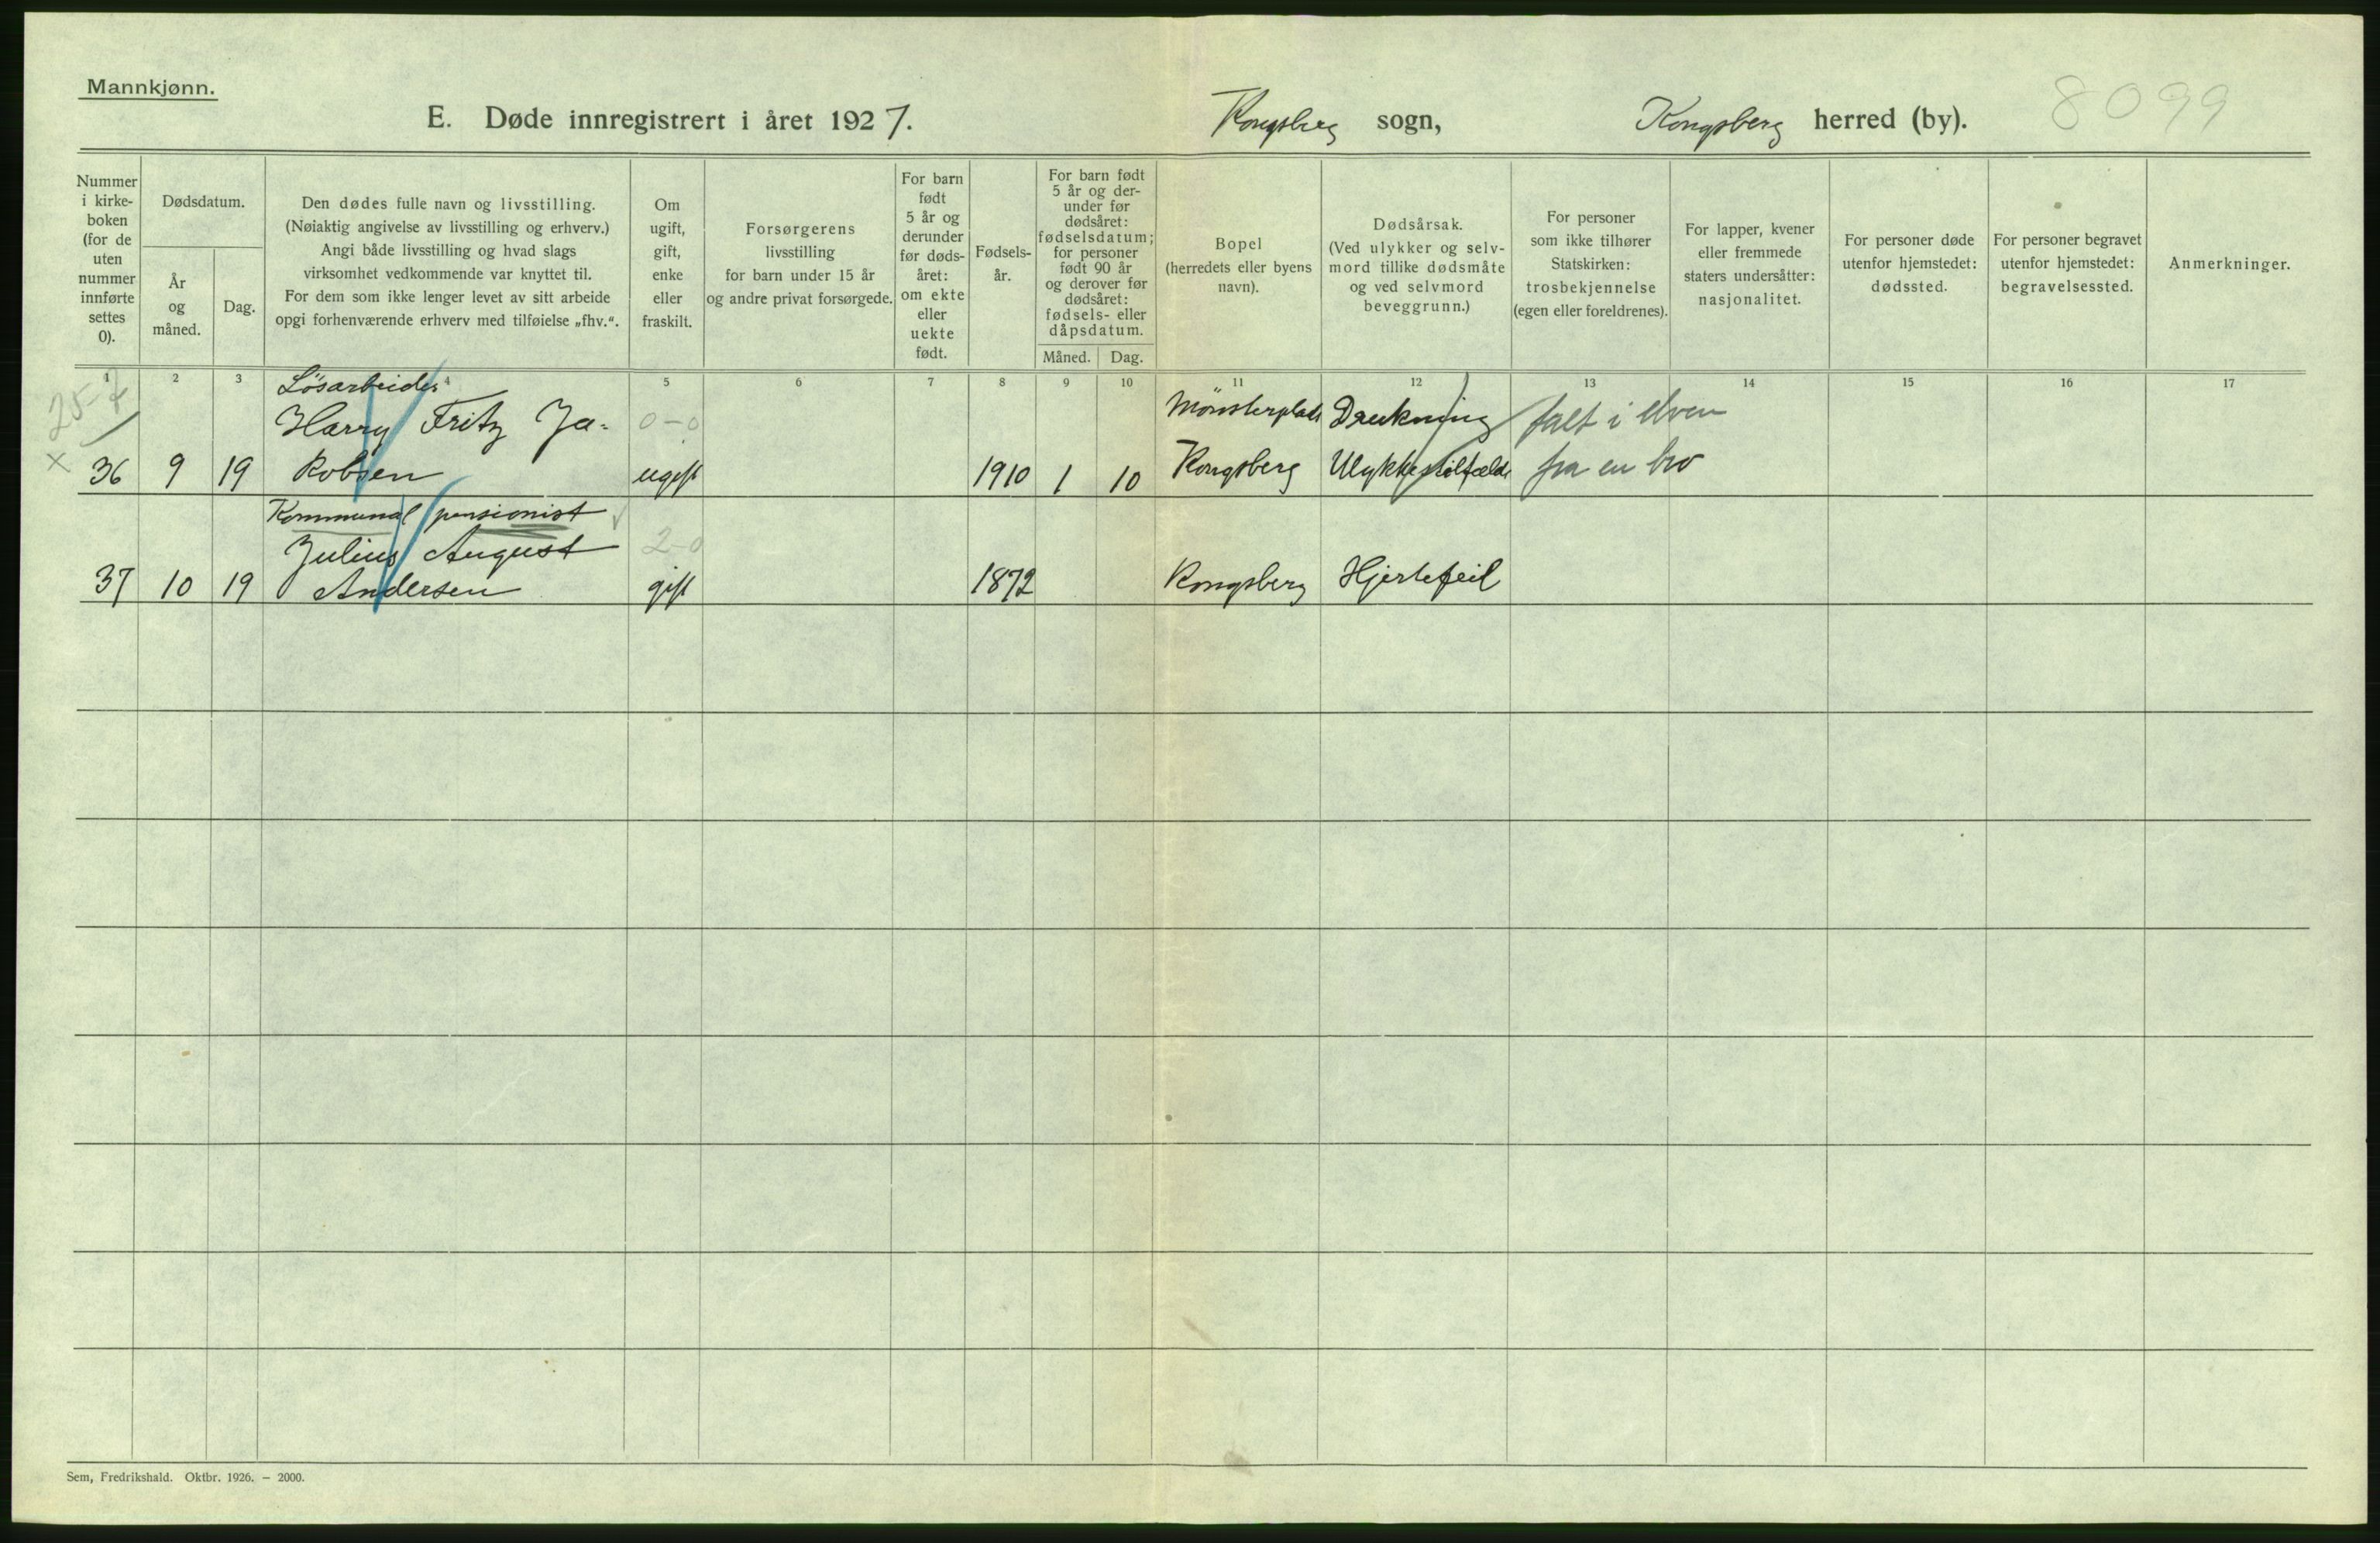 Mannkjønn.
E. Døde innregistrert i året 1927.
Kongsberg sogn,
Kongsberg herred (by).
8099
Nummer
i kirke-
boken
(for de
uten
nummer
innførte
settes
0).
Dødsdatum.
År
og
måned.
Dag.
Den dødes fulle navn og livsstilling.
(Nøiaktig angivelse av livsstilling og erhverv.)
Angi både livsstilling og hvad slags
virksomhet vedkommende var knyttet til.
For dem som ikke lenger levet av sitt arbeide
opgi forhenværende erhverv med tilføielse „fhv.“.
Om
ugift,
gift,
enke
eller
fraskilt.
Forsørgerens
livsstilling
for barn under 15 år
og andre privat forsørgede.
For barn
født
5 år og
derunder
før døds-
året:
om ekte
eller
uekte
født.
Fødsels-
år.
For barn født
5 år og der-
under før
dødsåret:
fødselsdatum;
for personer
født 90 år
og derover før
dødsåret:
fødsels- eller
dåpsdatum.
Måned.
Dag.
Bopel
(herredets eller byens
navn).
Dødsårsak.
(Ved ulykker og selv-
mord tillike dødsmåte
og ved selvmord
beveggrunn.)
For personer
som ikke tilhører
Statskirken:
trosbekjennelse
(egen eller foreldrenes).
For lapper, kvener
eller fremmede
staters undersåtter:
nasjonalitet.
For personer døde
utenfor hjemstedet:
dødssted.
For personer begravet
utenfor hjemstedet:
begravelsessted.
Anmerkninger.
1 2 3 4 5 6 7 8 9 10 11 12 13 14 15 16 17
Løsarbeider
Harry Fritz Ja- 0-0 Drukning falt i elven
x 36 9 19 kobsen ugift 1910 1 10 Kongsberg Ulykkestilfælde fra en bro
Kommunal pensionist
Julius August 2-0
37 10 19 Andersen gift 1872 Kongsberg Hjertefeil
Sem, Fredrikshald. Oktbr. 1926. – 2000.